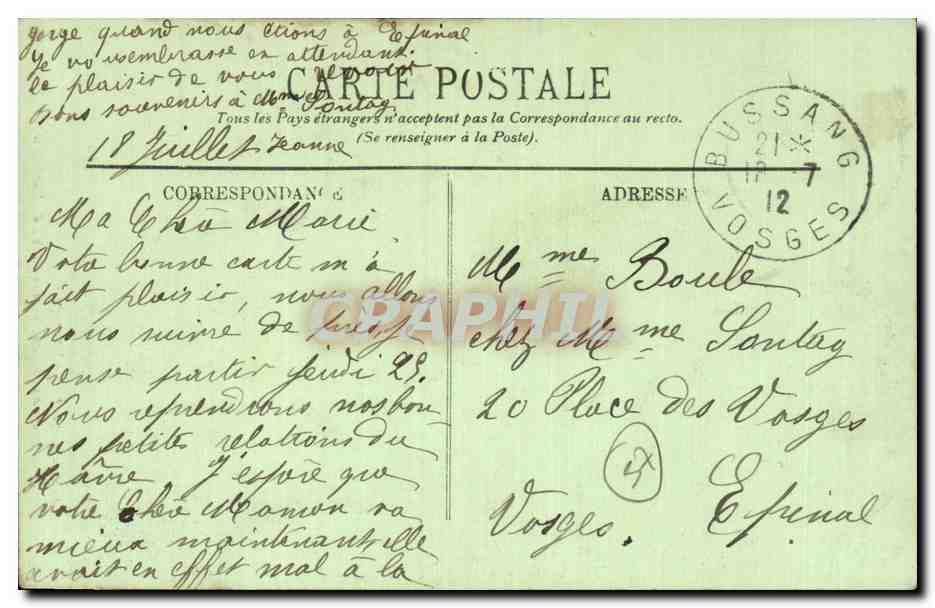 gorge quand nous étions à Epinal
Je vous embrasse en attendant
le plaisir de vous revoir
bons souvenirs à Mme Sontag
18 Juillet Jeanne
CARTE POSTALE
Tous les Pays étrangers n'acceptent pas la Correspondance au recto.
(Se renseigner à la Poste).
BUSSANG
21 *
18 - 7
12
VOSGES
CORRESPONDANCE
Ma Chère Marie
Votre bonne carte m'a
fait plaisir, nous allons
nous suivre de près je
pense partir jeudi 25.
Nous reprendrons nos bon-
nes petites relations du
Hâvre J'espère que
votre Chère Maman va
mieux maintenant elle
avait en effet mal à la
ADRESSE
Mme Boule
chez Mme Sontag
20 Place des Vosges
Epinal
Vosges.
CPAPHIL